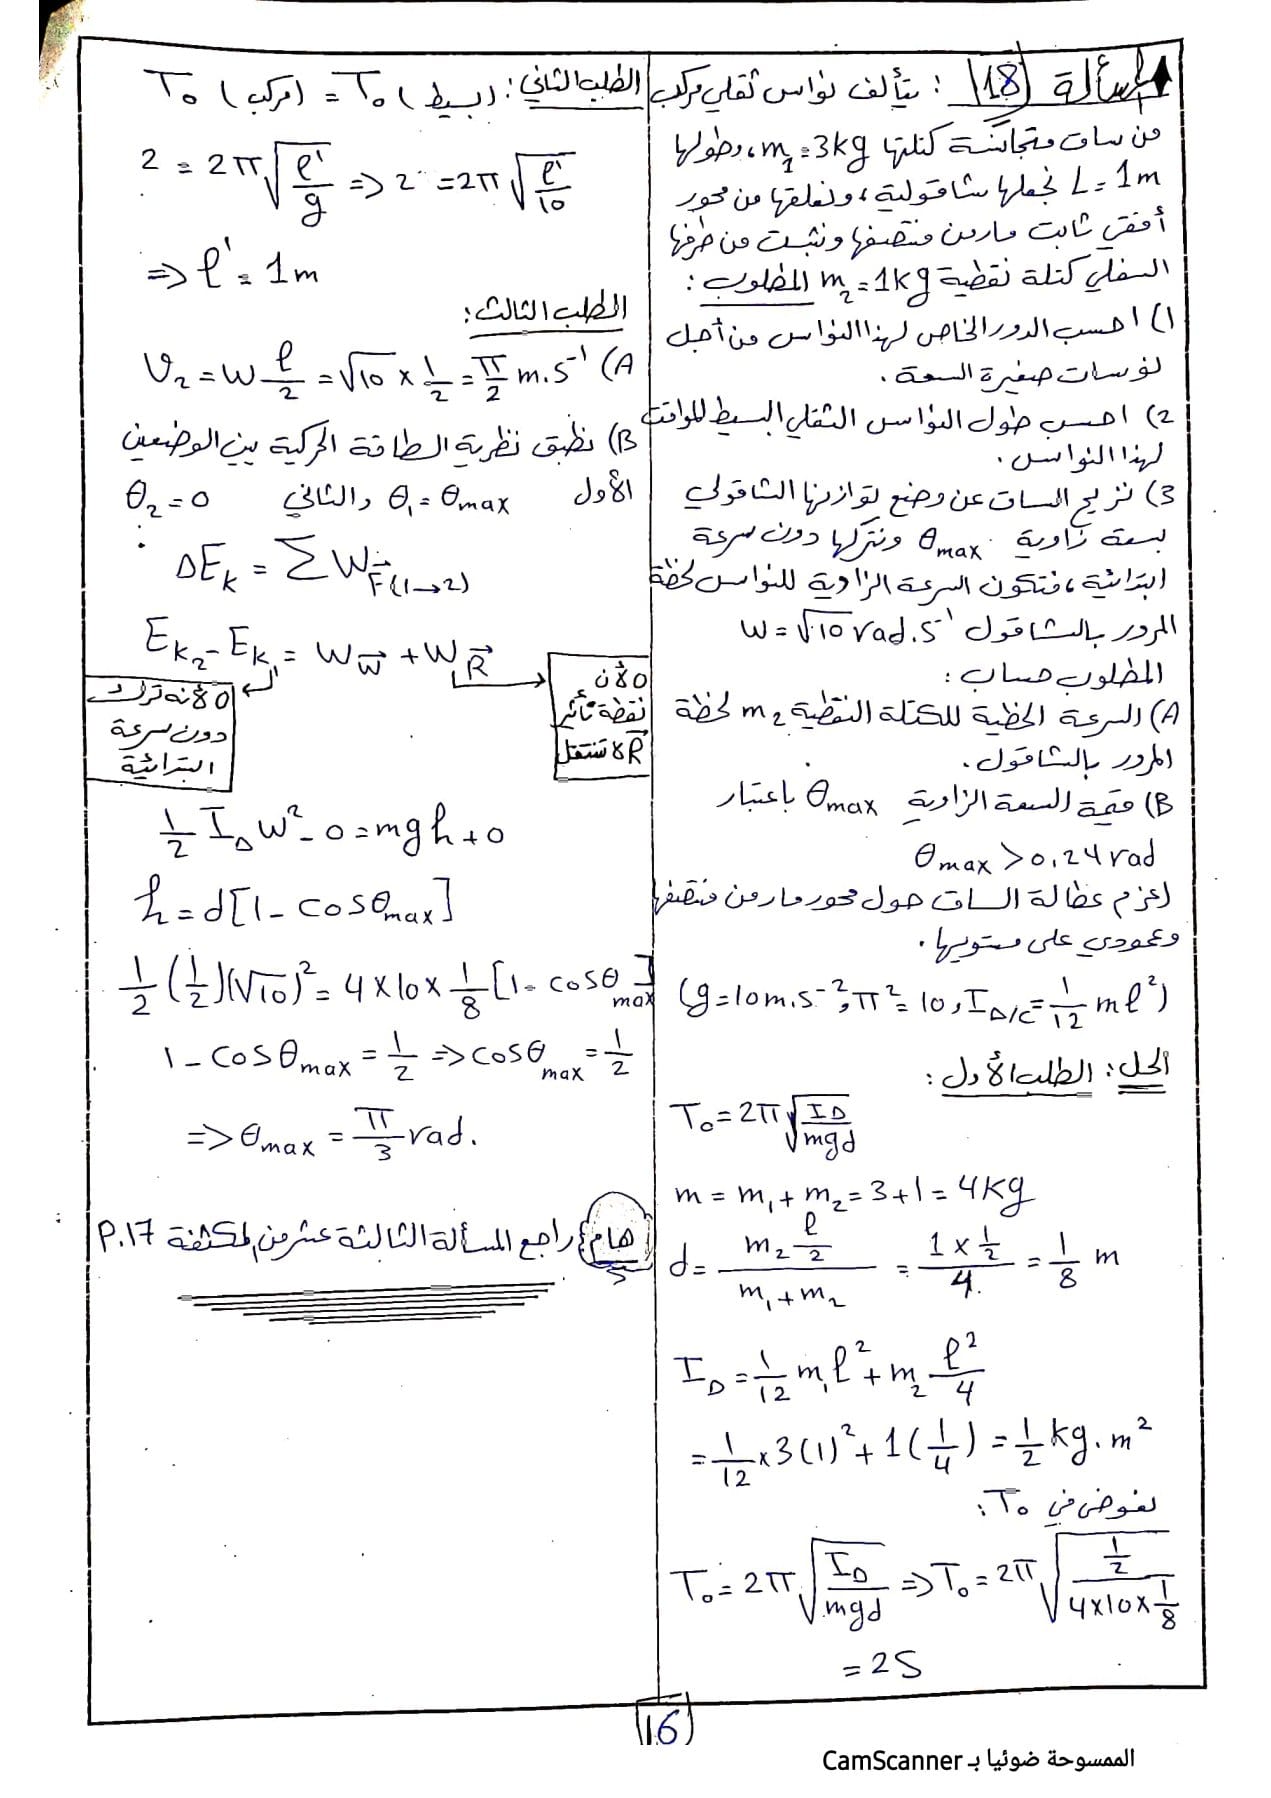 مسألة (18): يتألف نواس ثقلي مركب
من ساق متجانسة كتلتها m₁=3kg، وطولها
L=1m نجعلها شاقولية، ونعلقها من محور
أفقي ثابت مار من منتصفها ونثبت من طرفها
السفلي كتلة نقطية m₂=1kg المطلوب:
1) احسب الدور الخاص لهذا النواس من أجل
نوسات صغيرة السعة.
2) احسب طول النواس الثقلي البسيط المواقت
لهذا النواس.
3) نزيح الساق عن وضع توازنها الشاقولي
بسعة زاوية θmax ونتركها دون سرعة
ابتدائية، فتكون السرعة الزاوية للنواس لحظة
المرور بالشاقول w=√10 rad.s⁻¹
المطلوب حساب:
A) السرعة الخطية للكتلة النقطية m₂ لحظة
المرور بالشاقول.
B) قيمة السعة الزاوية θmax باعتبار
θmax > 0,24 rad
(عزم عطالة الساق حول محور مار من منتصفها
وعمودي على مستويها.
(g=10m.s⁻², π²=10, I∆/C=1/12 mℓ²)
الحل: الطلب الأول:
T₀=2π√(I∆/mgd)
m = m₁+m₂=3+1=4kg
d= (m₂ ℓ/2)/(m₁+m₂) = (1×1/2)/4 = 1/8 m
I∆ = 1/12 m₁ℓ² + m₂ ℓ²/4
= 1/12 ×3(1)²+1(1/4) = 1/2 kg.m²
نعوض في T₀:
T₀=2π√(I∆/mgd) ⇒ T₀=2π√((1/2)/(4×10×1/8))
=2S
الطلب الثاني: (بسيط) T₀ = (مركب) T₀
2 = 2π√(ℓ'/g) ⇒ 2 =2π√(ℓ'/10)
⇒ ℓ' = 1m
الطلب الثالث:
A) v₂ = w ℓ/2 = √10 × 1/2 = π/2 m.s⁻¹
B) نطبق نظرية الطاقة الحركية بين الوضعين
الأول θ₁ = θmax والثاني θ₂=0
∆Ek = ∑W F⃗(1→2)
Ek₂ - Ek₁ = W w⃗ + W R⃗
0 لأنه ترك
دون سرعة
ابتدائية
0 لأن
نقطة تأثير
R⃗ لا تنتقل
1/2 I∆ w² - 0 = mgh + 0
h = d[1 - cosθmax]
1/2 (1/2)(√10)² = 4×10× 1/8 [1 - cosθmax]
1 - cosθmax = 1/2 ⇒ cosθmax = 1/2
⇒ θmax = π/3 rad.
هام: راجع المسألة الثالثة عشر من المكثفة P.17
16
الممسوحة ضوئيا بـ CamScanner